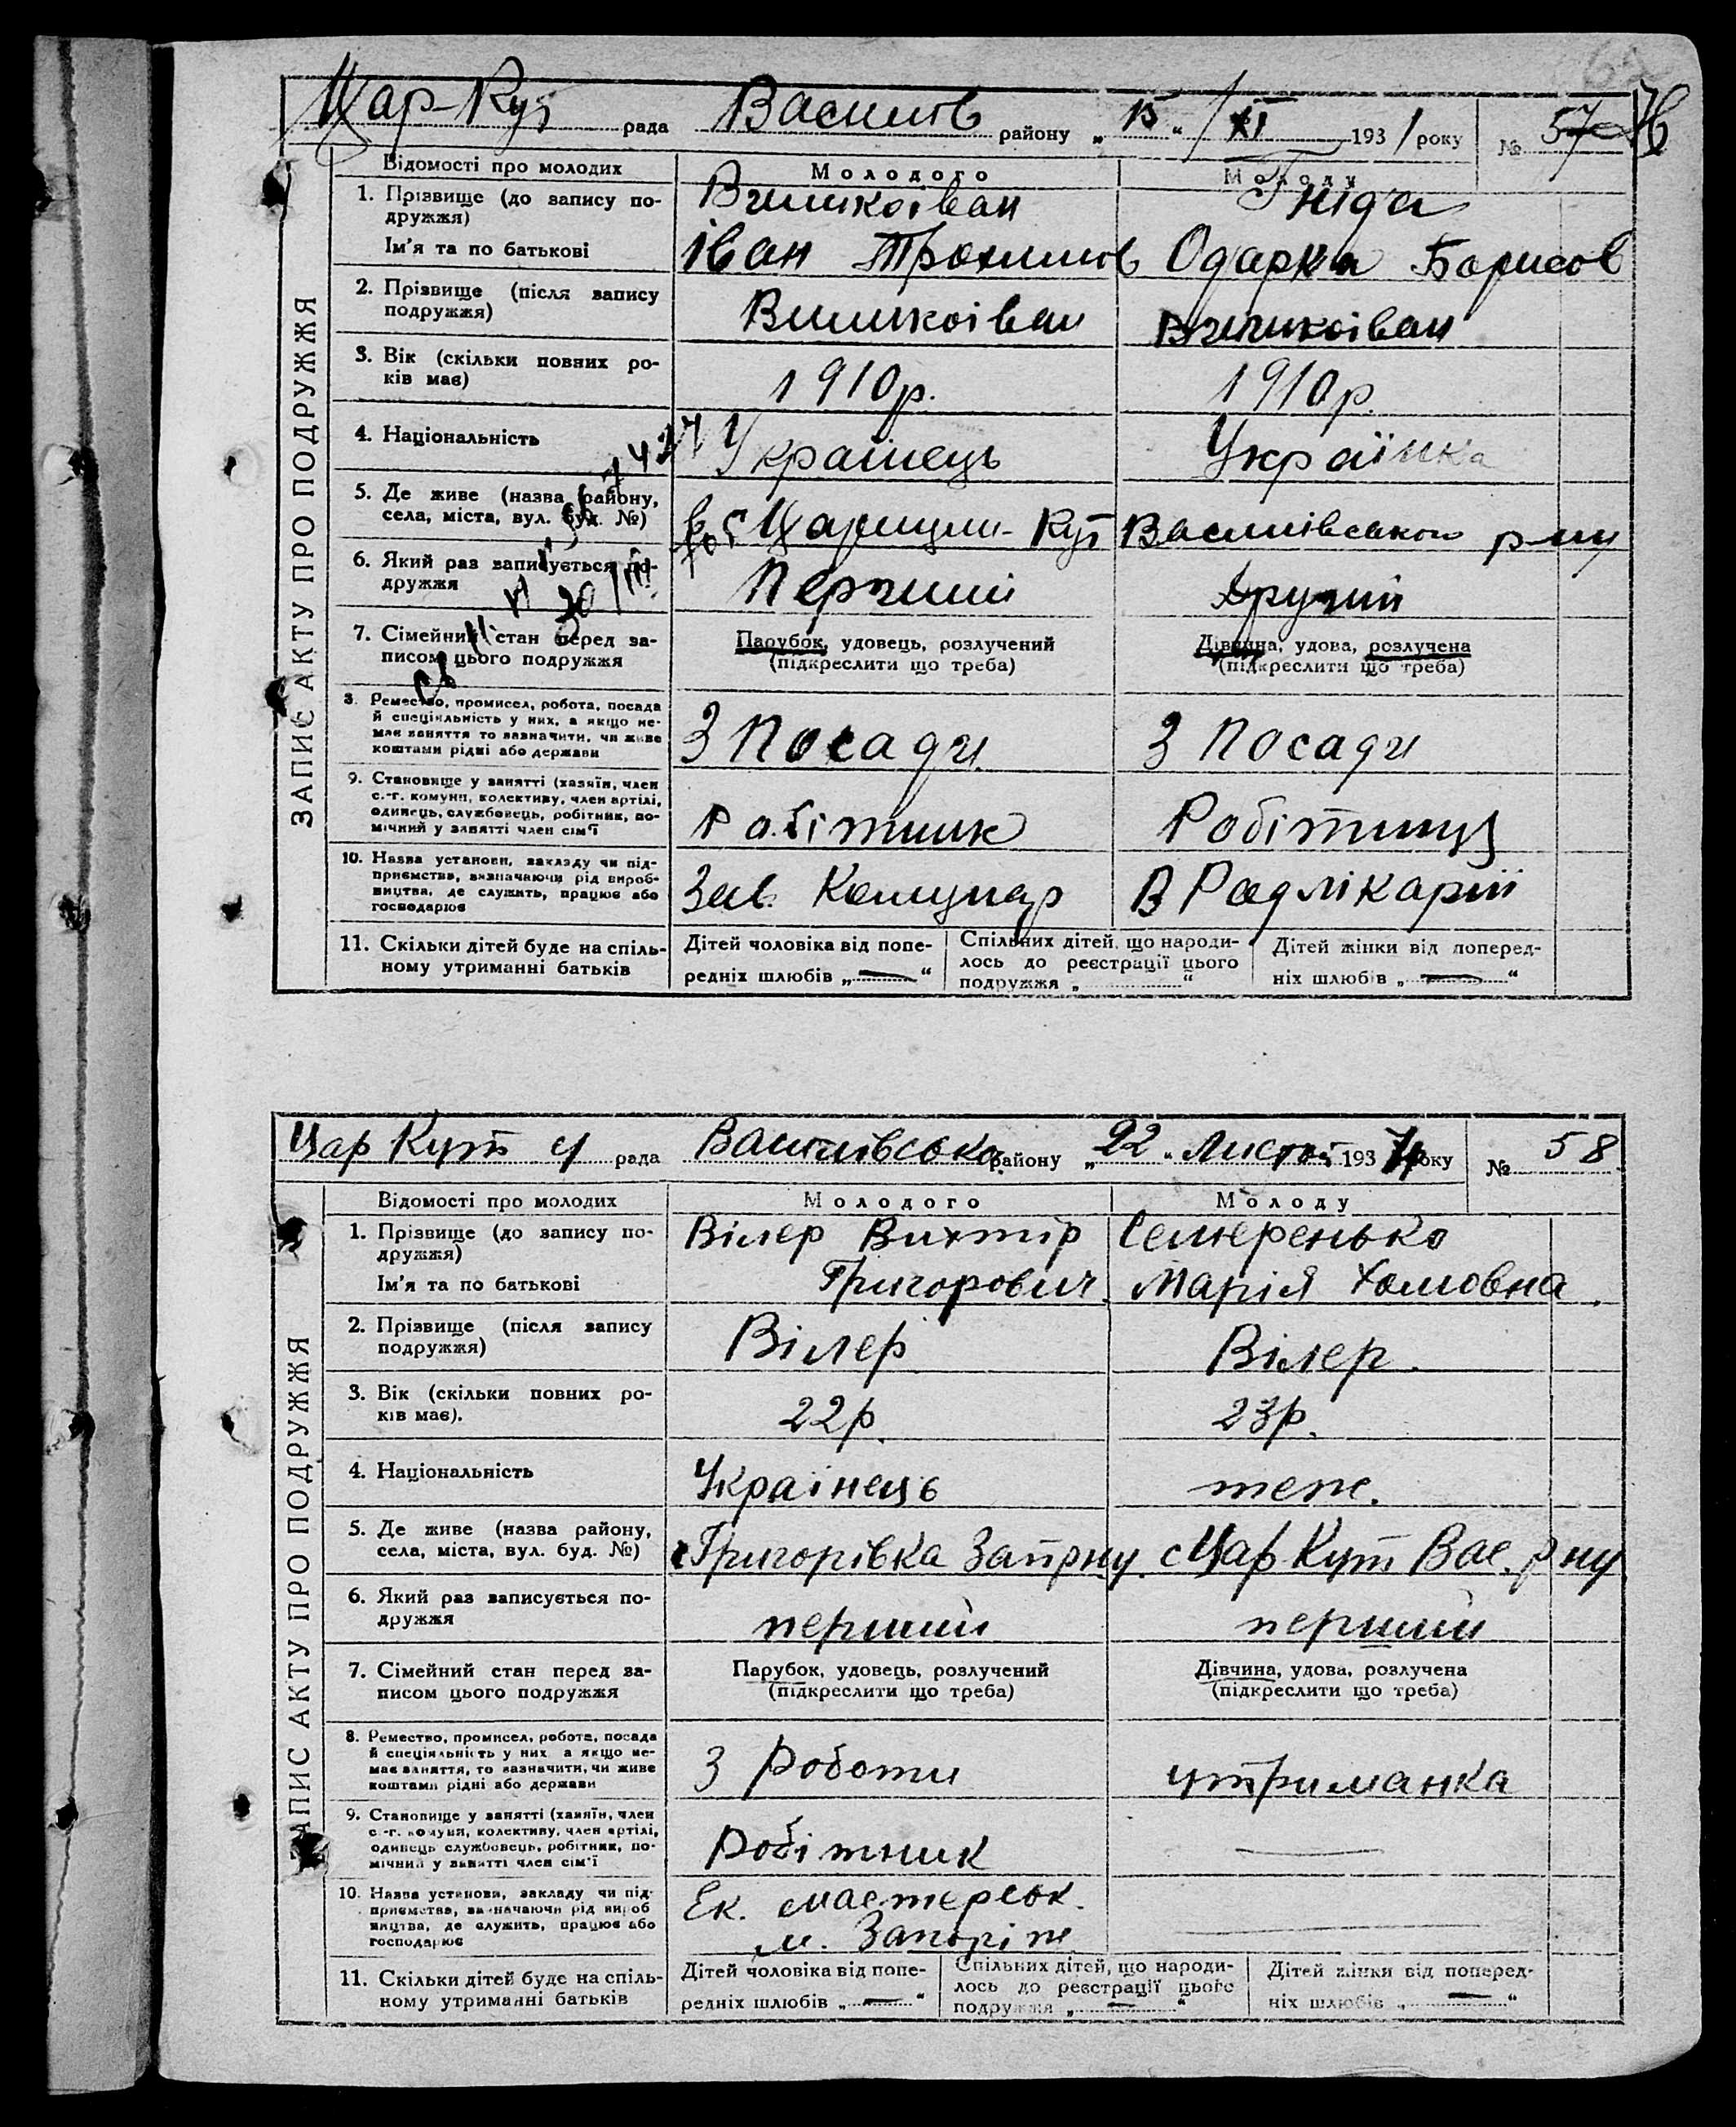 Цар-Кут рада Василів району „15“ /XI 1931 року № 57
Відомості про молодих Молодого Молоду
1. Прізвище (до запису подружжя) Вишкоіван Гнида
Ім'я та по батькові Іван Трохимов Одарка Борисов
2. Прізвище (після запису подружжя) Вишкоіван Вишкоіван
3. Вік (скільки повних років має) 1910р. 1910р.
4. Національність Українець Українка
5. Де живе (назва району, села, міста, вул. буд. №) с Царицин-Кут Василівського р-ну
6. Який раз записується подружжя Перший Другий
7. Сімейний стан перед записом цього подружжя Парубок, удовець, розлучений (підкреслити що треба) Дівчина, удова, розлучена (підкреслити що треба)
8. Ремество, промисел, робота, посада й спеціяльність у них, а якщо немає заняття то зазначити, чи живе коштами рідні або держави З Посади З Посади
9. Становище у занятті (хазяїн, член с.-г. комуни, колективу, член артілі, одинець, службовець, робітник, помічний у занятті член сім'ї Робітник Робітниця
10. Назва установи, закладу чи підприємства, визначаючи рід виробництва, де служить, працює або господарює Зав. Комунар В Радлікарні
11. Скільки дітей буде на спільному утриманні батьків Дітей чоловіка від попередніх шлюбів „—“ Спільних дітей, що народилось до реєстрації цього подружжя „ “ Дітей жінки від попередніх шлюбів „—“
ЗАПИС АКТУ ПРО ПОДРУЖЖЯ
Цар Кут с/ рада Василівська району „22“ Листоп 1931 року № 58
Відомості про молодих Молодого Молоду
1. Прізвище (до запису подружжя) Вілер Вихтір Семеренько
Ім'я та по батькові Григорович. Марія Хомовна.
2. Прізвище (після запису подружжя) Вілер Вілер.
3. Вік (скільки повних років має). 22р. 23р.
4. Національність Українець теж.
5. Де живе (назва району, села, міста, вул. буд. №) с Григорівка Запрну. с Цар Кут Вас. рну
6. Який раз записується подружжя перший перший
7. Сімейний стан перед записом цього подружжя Парубок, удовець, розлучений (підкреслити що треба) Дівчина, удова, розлучена (підкреслити що треба)
8. Ремество, промисел, робота, посада й спеціяльність у них а якщо немає заняття, то зазначити, чи живе коштами рідні або держави З Роботи утриманка
9. Становище у занятті (хазяїн, член с.-г. комуни, колективу, член артілі, одинець службовець, робітник, помічний у занятті член сім'ї Робітник —
10. Назва установи, закладу чи підприємства, визначаючи рід виробництва, де служить, працює або господарює Ек. мастерськ. м. Запоріж —
11. Скільки дітей буде на спільному утриманні батьків Дітей чоловіка від попередніх шлюбів „—“ Спільних дітей, що народилось до реєстрації цього подружжя „—“ Дітей жінки від попередніх шлюбів „—“
ЗАПИС АКТУ ПРО ПОДРУЖЖЯ